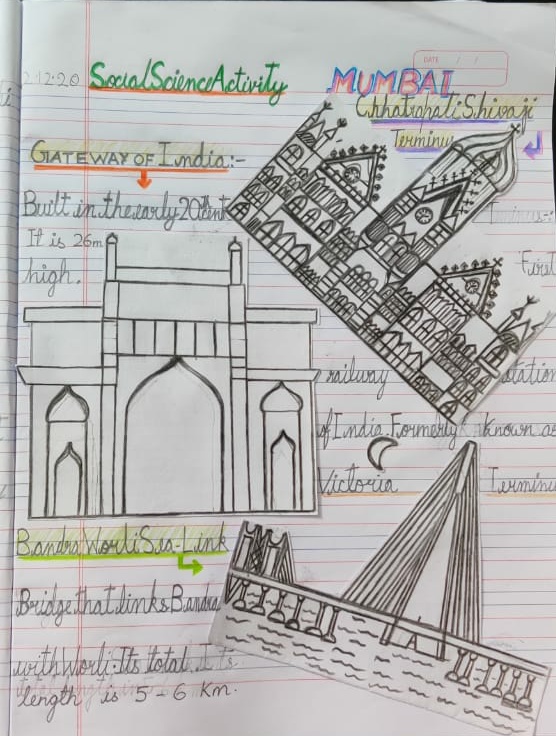 2.12.20 Social Science Activity MUMBAI
DATE / /
Chhatrapati Shivaji
Terminus
GATEWAY OF India:-
Built in the early 20th
It is 26m
high.
railway station
of India. Formerly known as
Victoria Terminus
Bandra Worli Sea-Link
Bridge that links Bandra
with Worli. Its total
length is 5-6 Km.